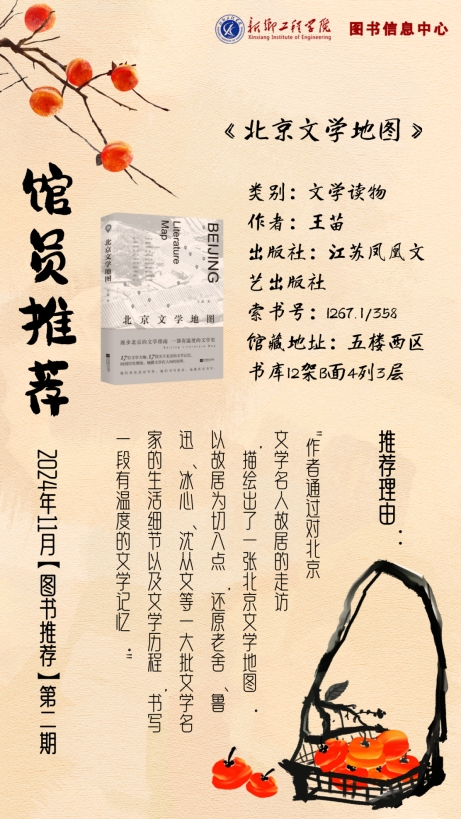 新乡工程学院
Xinxiang Institute of Engineering
图书信息中心
《北京文学地图》
类别：文学读物
作者：王苗
出版社：江苏凤凰文
艺出版社
索书号：I267.1/358
馆藏地址：五楼西区
书库12架B面4列3层
馆员推荐
2024年11月【图书推荐】第二期
BEIJING
Literature
Map
北京文学地图
北京文学地图
推荐理由：
“作者通过对北京
文学名人故居的走访
，描绘出了一张北京文学地图。
以故居为切入点，还原老舍、鲁
迅、冰心、沈从文等一大批文学名
家的生活细节以及文学历程，书写
一段有温度的文学记忆。”